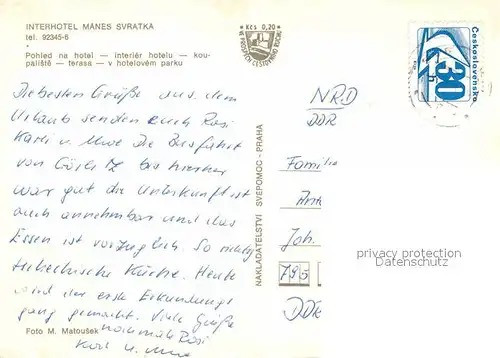 INTERHOTEL MÁNES SVRATKA
tel. 92345-6
Pohled na hotel — interiér hotelu — kou-
paliště — terasa — v hotelovém parku
Kčs 0,20
VE PROSPĚCH CESTOVNÍHO RUCHU
Československo
30
h
Liebesten Grüße aus dem
Urlaub senden euch Rosi
Karl u. Uwe Die Busfahrt
von Görlitz bis hierher
war gut die Unterkunft ist
auch annehmbar und das
Essen ist vorzüglich. So richtig
tschechische Küche. Heute
wird der erste Erkundungs
gang gemacht. Viele Grüße
nochmals Rosi
Karl u. Uwe
Foto M. Matoušek
NAKLADATELSTVÍ SVÉPOMOC - PRAHA
NRD
DDR
Familie
Joh.
795
DDR
privacy protection
Datenschutz